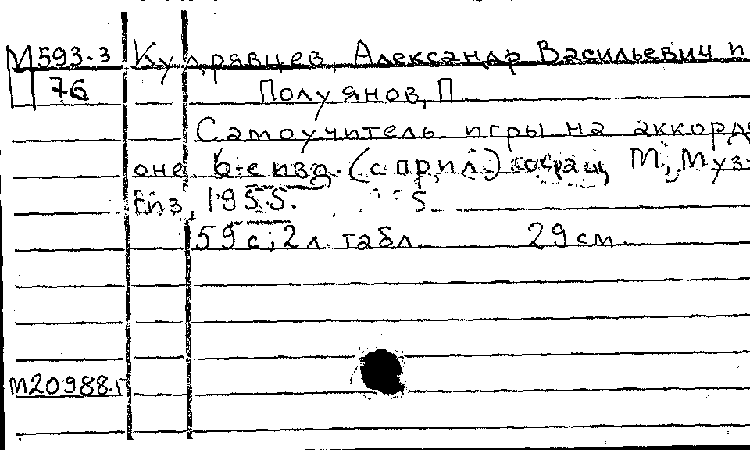 М593.3 Кудрявцев, Александр Васильевич и
76 Полуянов, П
Самоучитель игры на аккорде
оне. 6-е изд. (с прил.) М., Муз-
гиз, 1955.
59 с., 2 л. табл. 29 см.
М20988.г